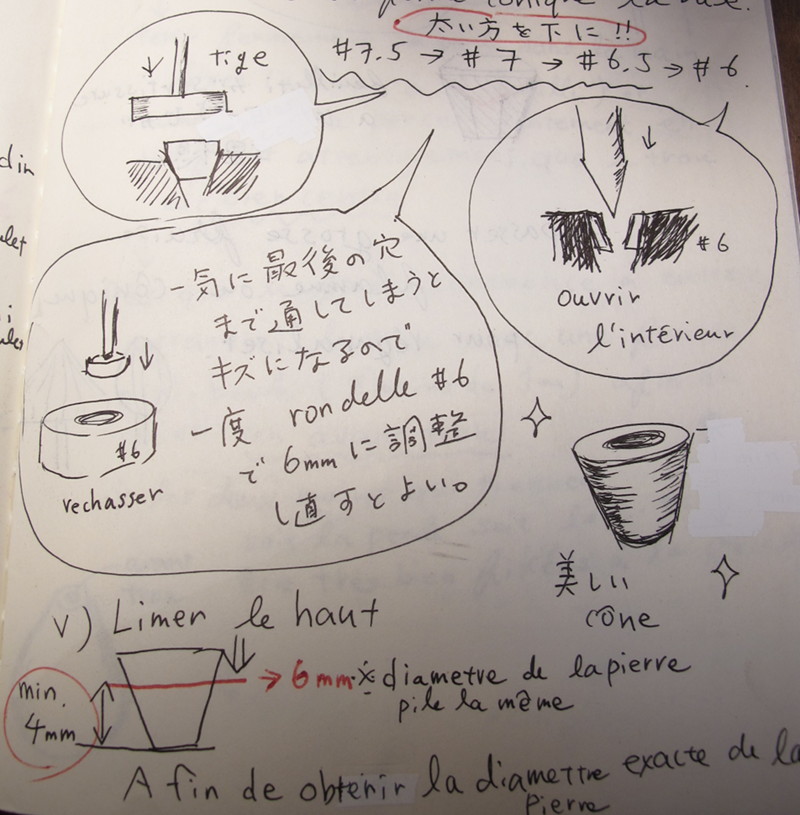 conique
太い方を下に!!
#7.5 → #7 → #6.5 → #6.
tige
#6
ouvrir
l'intérieur
一気に最後の穴
まで通してしまうと
キズになるので
一度 rondelle #6
で 6mm に調整
し直すとよい。
#6
rechasser
美しい
cône
V) Limer le haut
min.
4mm
→ 6mm ※ diametre de la pierre
pile la même
A fin de obtenir la diamettre exacte de la
Pierre